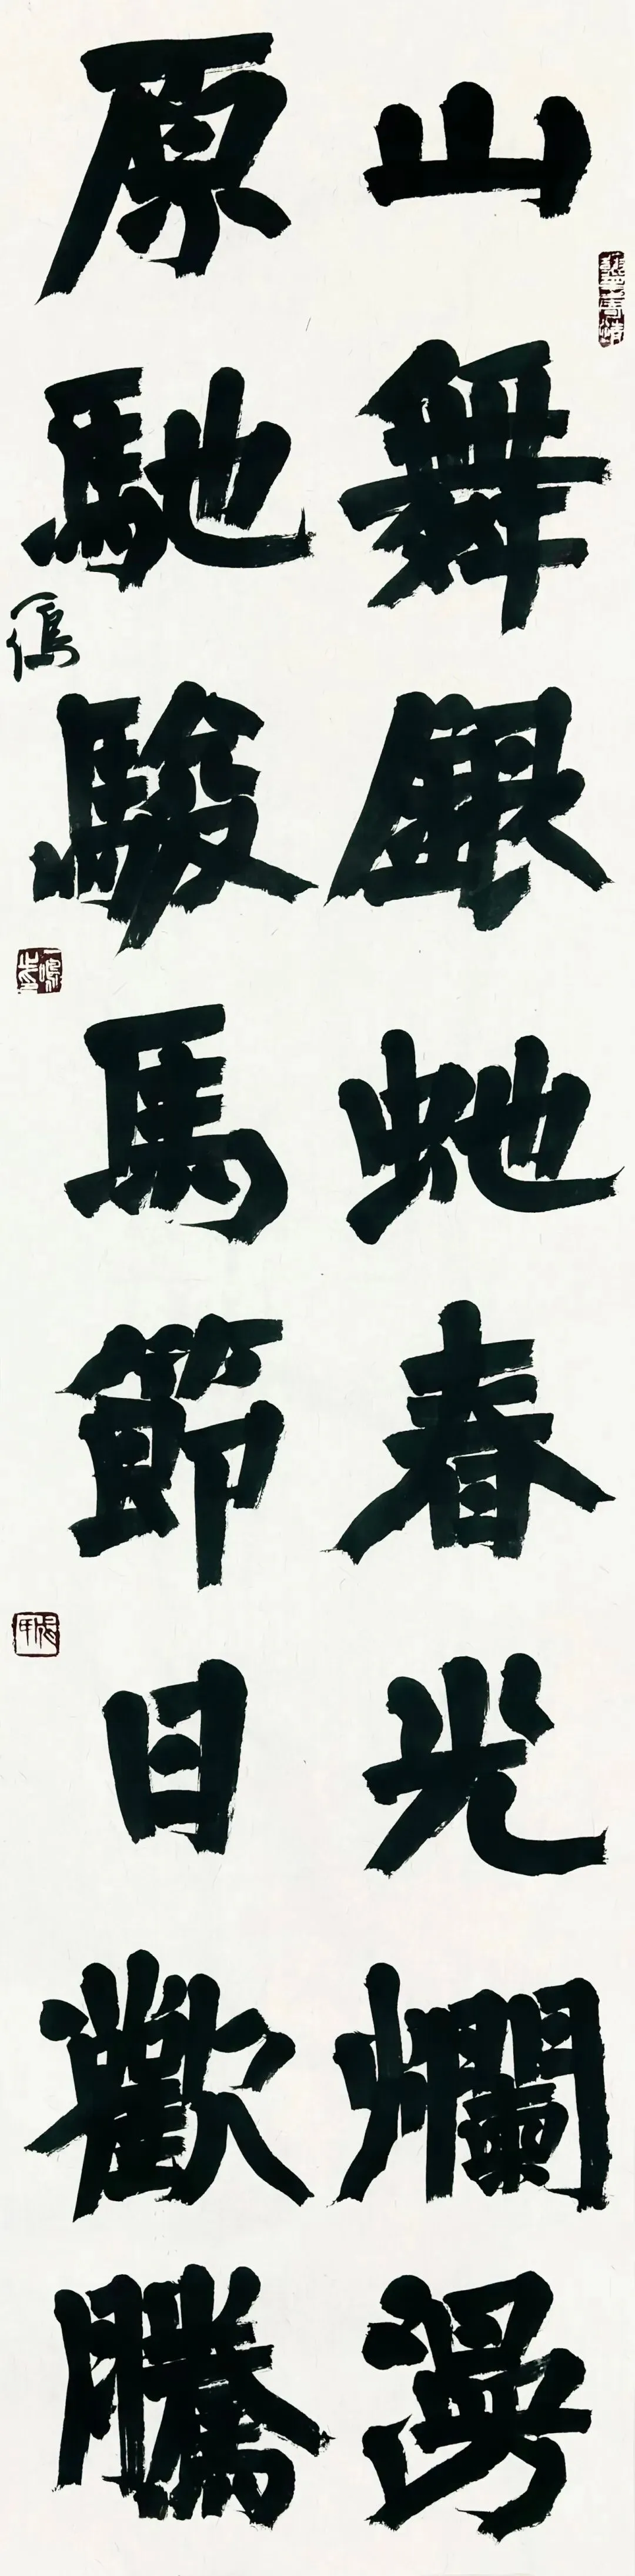 山舞銀蛇春光爛漫
原馳駿馬節日歡騰